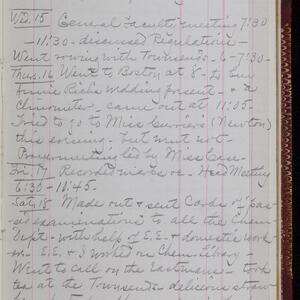 WD. 15 General Faculty meeting 7:30
- 11:30 - discussed Regulations -
Went rowing with Townsends - 6 - 7:30 -
Thurs. 16 Went to Boston at 8 - to buy
Annie Richs wedding present - & a
Clinometer - came out at 11:05 -
Tried to go to Miss Currier's (Newton)
this evening - but must not -
Prayer meeting led by Miss Case
Fri. 17 Recorded marks - Head Meeting
6:30 - 11:45.
Sat. 18 Made out & sent Cards of
examinations to all the Chem.
Dept - with help of E.E. & domestic work
- E.E. & I worked on Chem. library -
Went to call on the Eastmans - took
tea at the Townsends - delicious straw